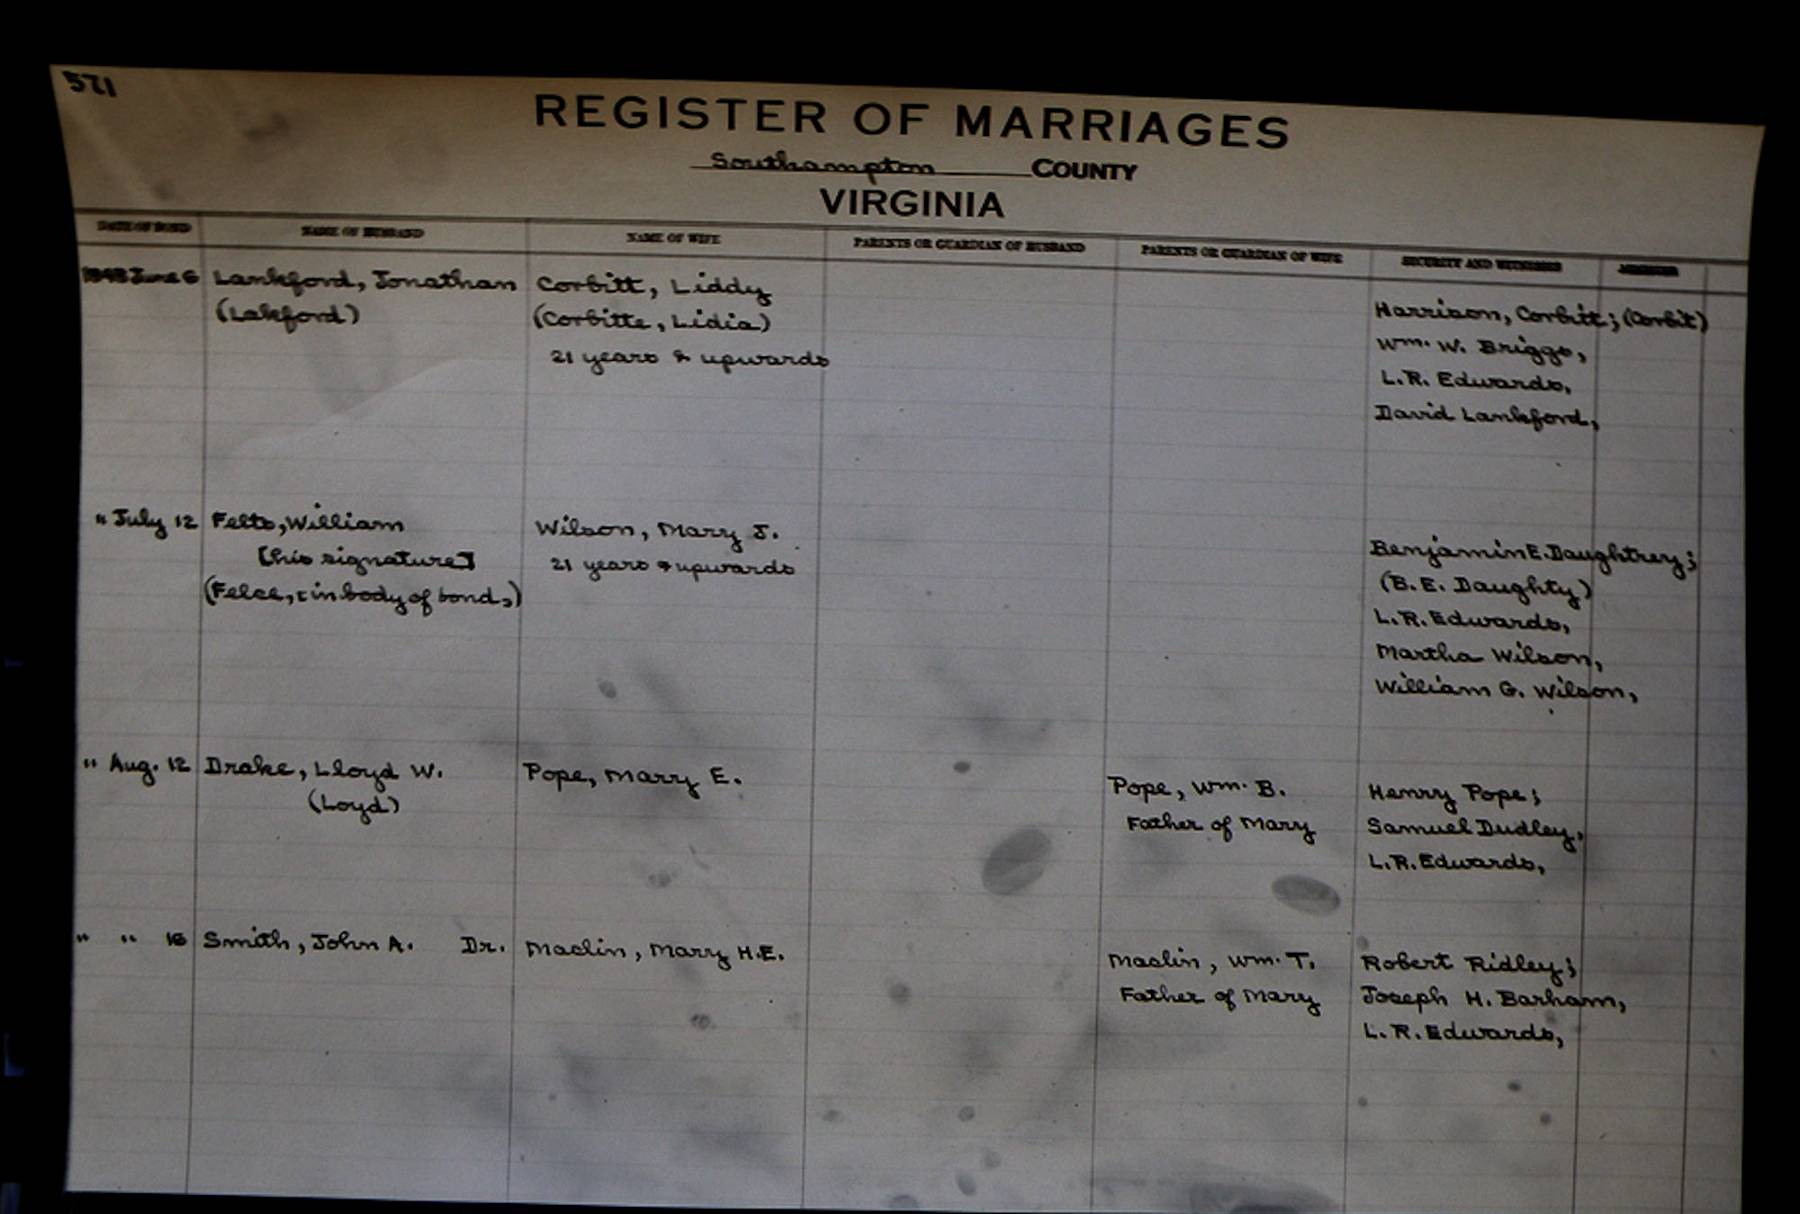 571
REGISTER OF MARRIAGES
Southampton COUNTY
VIRGINIA
DATE OF BOND NAME OF HUSBAND NAME OF WIFE PARENTS OR GUARDIAN OF HUSBAND PARENTS OR GUARDIAN OF WIFE SECURITY AND WITNESSES MINISTER
1848 June 6 Lankford, Jonathan Corbitt, Liddy
(Lakford) (Corbitte, Lidia) Harrison, Corbitt; (Corbit)
21 years & upwards Wm. W. Briggs,
L.R. Edwards,
David Lankford,
" July 12 Felts, William Wilson, Mary J.
[his signature] 21 years & upwards Benjamin E. Daughtrey;
(Felce, in body of bond,) (B. E. Daughty)
L.R. Edwards,
Martha Wilson,
William G. Wilson,
" Aug. 12 Drake, Lloyd W. Pope, Mary E. Pope, Wm. B. Henry Pope;
(Loyd) Father of Mary Samuel Dudley,
L.R. Edwards,
" " 16 Smith, John A. Dr. Maclin, Mary H.E. Maclin, Wm. T. Robert Ridley;
Father of Mary Joseph H. Barham,
L.R. Edwards,